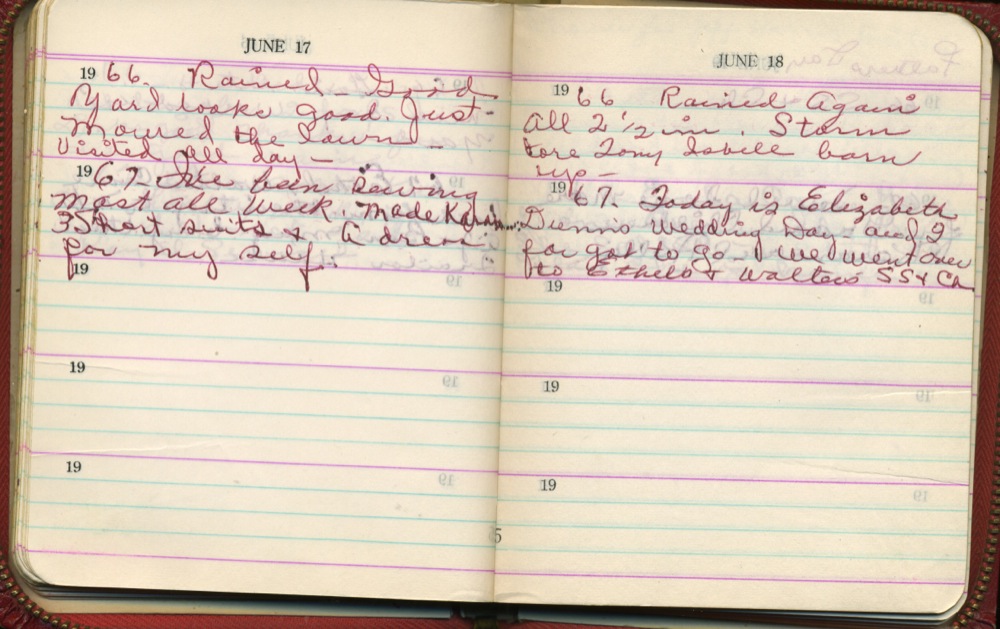 JUNE 17
1966. Rained Good
Yard looks good. Just
Mowed the lawn -
Visited all day -
1967- I've ben sewing
most all week. Made
3 Short suits + a dress
for my self.
19
19
19
JUNE 18
1966 Rained Again
all 2 1/2 in. Storm
tore Tony barn
up -
1967. Today is Elizabeth
Wedding Day - and I
for got to go - We went over
to Ethels + Walters SS + Ch
19
19
19
5